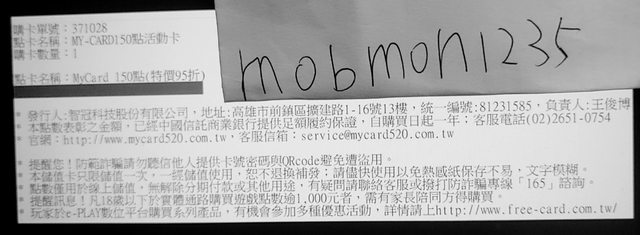 購卡單號：371028
點卡名稱：MY-CARD150點活動卡
購卡數量：1
點卡名稱：MyCard 150點(特價95折)
mobmon1235
* 發行人:智冠科技股份有限公司，地址:高雄市前鎮區擴建路1-16號13樓，統一編號:81231585，負責人:王俊博
* 本點數表彰之金額，已經中國信託商業銀行提供足額履約保證，自購買日起一年；客服電話(02)2651-0754
* 官網：http://www.mycard520.com.tw，客服信箱：service@mycard520.com.tw
* 提醒您！防範詐騙請勿聽信他人提供卡號密碼與QRcode避免遭盜用。
* 本儲值卡只限儲值一次，一經儲值使用，恕不退換補發；請儘快使用以免熱感紙保存不易，文字模糊。
* 點數僅用於線上儲值，無解除分期付款或其他用途，有疑問請聯絡客服或撥打防詐騙專線「165」諮詢。
* 提醒訊息！凡18歲以下於實體通路購買遊戲點數逾1,000元者，需有家長陪同方得購買。
* 玩家於e-PLAY數位平台購買系列產品，有機會參加多種優惠活動，詳情請上http://www.free-card.com.tw/